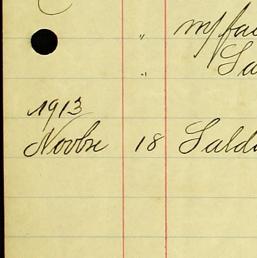 " m/fa
" Sa
1913
Novbre 18 Sald